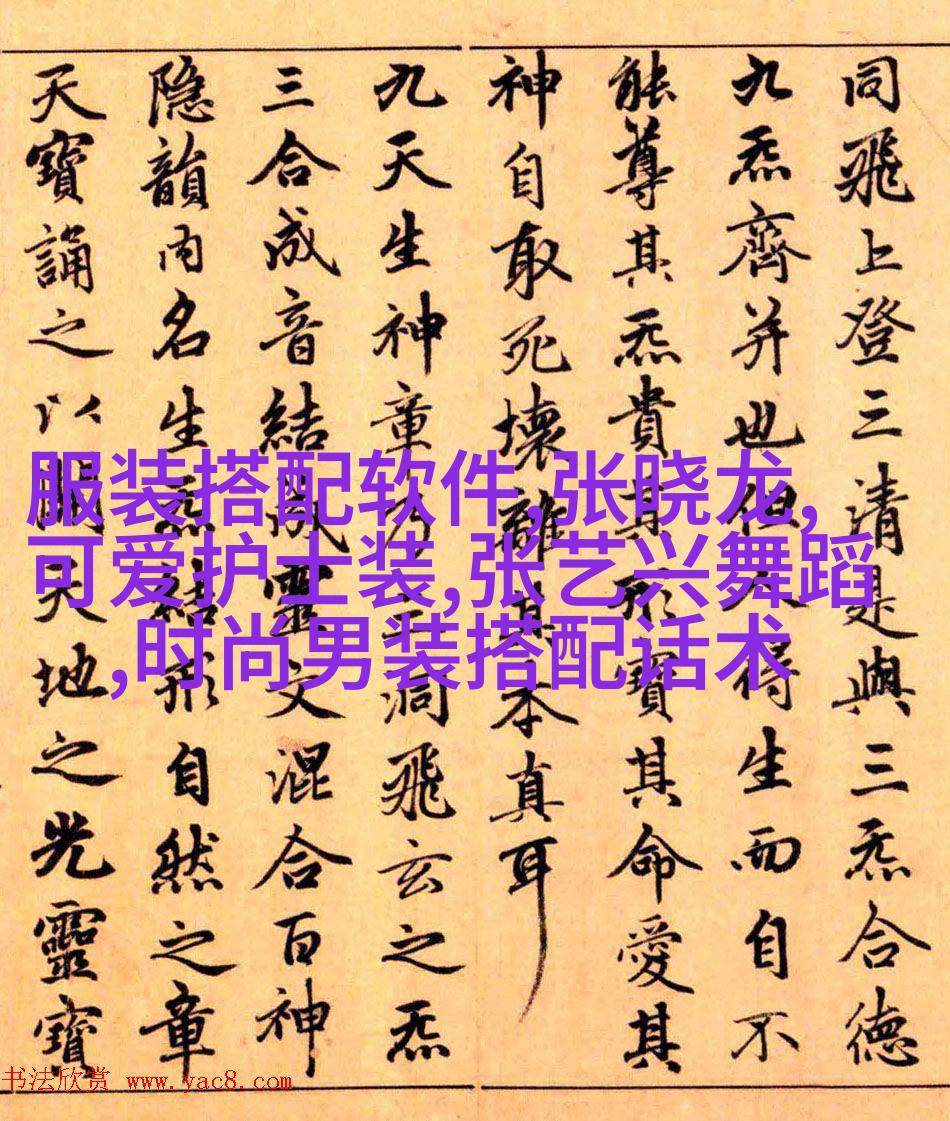 同飛上登三清是與三炁合德
九炁齊并也但人得生而自不
能尊其炁貴其形寶其命愛其
神自取死壞離其本真耳
九天生神章乃三洞飛玄之炁
三合成音結成靈文混合百神
隱韻內名生炁結形自然之章
天寶誦之以開天地之光靈寶
服装搭配软件,张晓龙,
可爱护士装,张艺兴舞蹈
,时尚男装搭配话术
书法欣赏 www.yac8.com